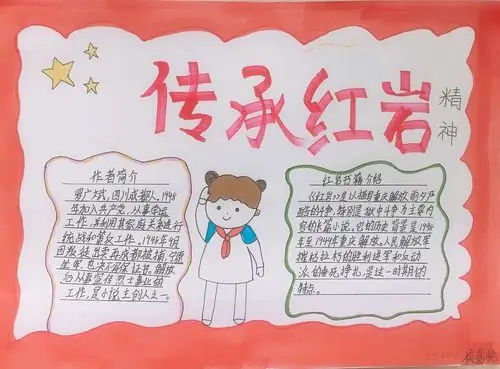 传承红岩
精神
作者简介
罗广斌,四川成都人,1948
年加入共产党,从事学运
工作,并利用其家庭关系进行
统战和策反工作,1948年9月
因叛徒出卖在成都被捕,
坐牢,也决不
后从事
工作,是小说主创人之一。
红岩书籍介绍
《红岩》是以描写重庆解放前夕严
酷的斗争,特别是狱中斗争为主要内
容的长篇小说,它的历史背景是1948
年至1949年重庆解放,人民解放军
摧枯拉朽的胜利进军和反动
派的垂死挣扎,是这一时期的
特点。